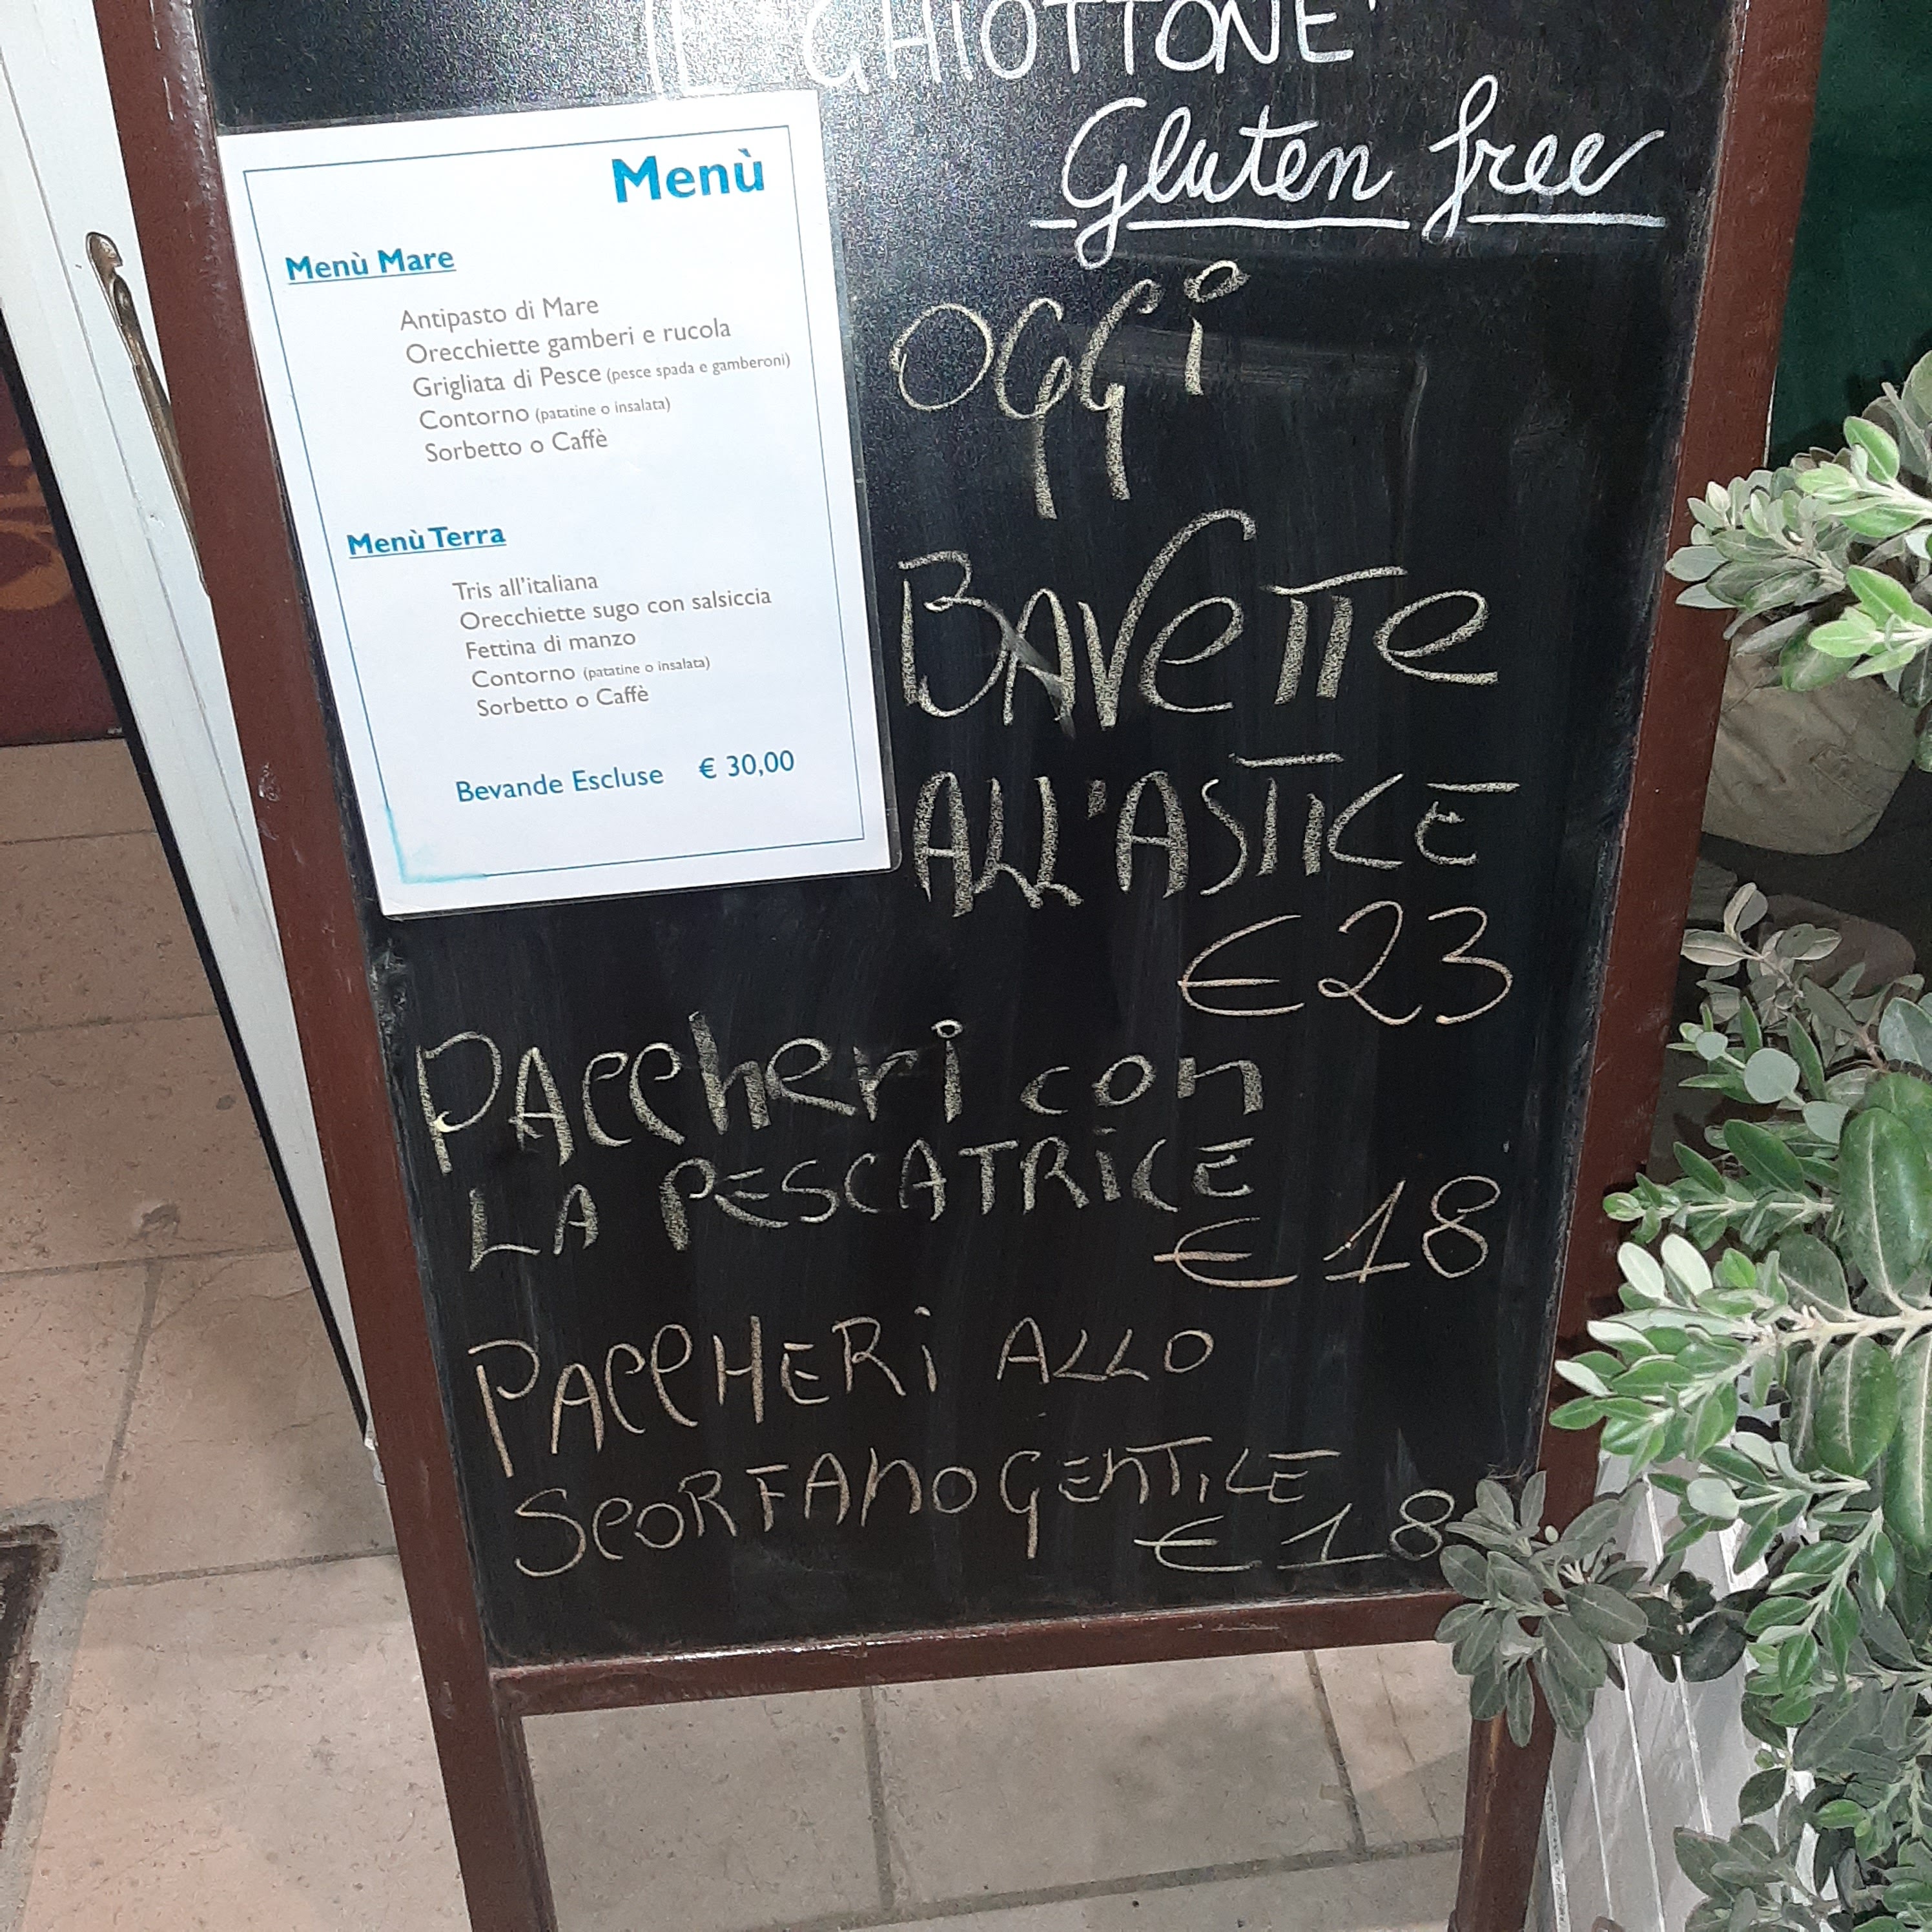 IL GHIOTTONE
Gluten free
Menù
Menù Mare
Antipasto di Mare
Orecchiette gamberi e rucola
Grigliata di Pesce (pesce spada e gamberoni)
Contorno (patatine o insalata)
Sorbetto o Caffè
Menù Terra
Tris all'italiana
Orecchiette sugo con salsiccia
Fettina di manzo
Contorno (patatine o insalata)
Sorbetto o Caffè
Bevande Escluse € 30,00
OGGi
BAVeTTe
ALL'ASTICE
€ 23
PAccheri con
LA PESCATRiCE
€ 18
PAccHERi ALLO
ScORFAnO GEnTILE
€ 18